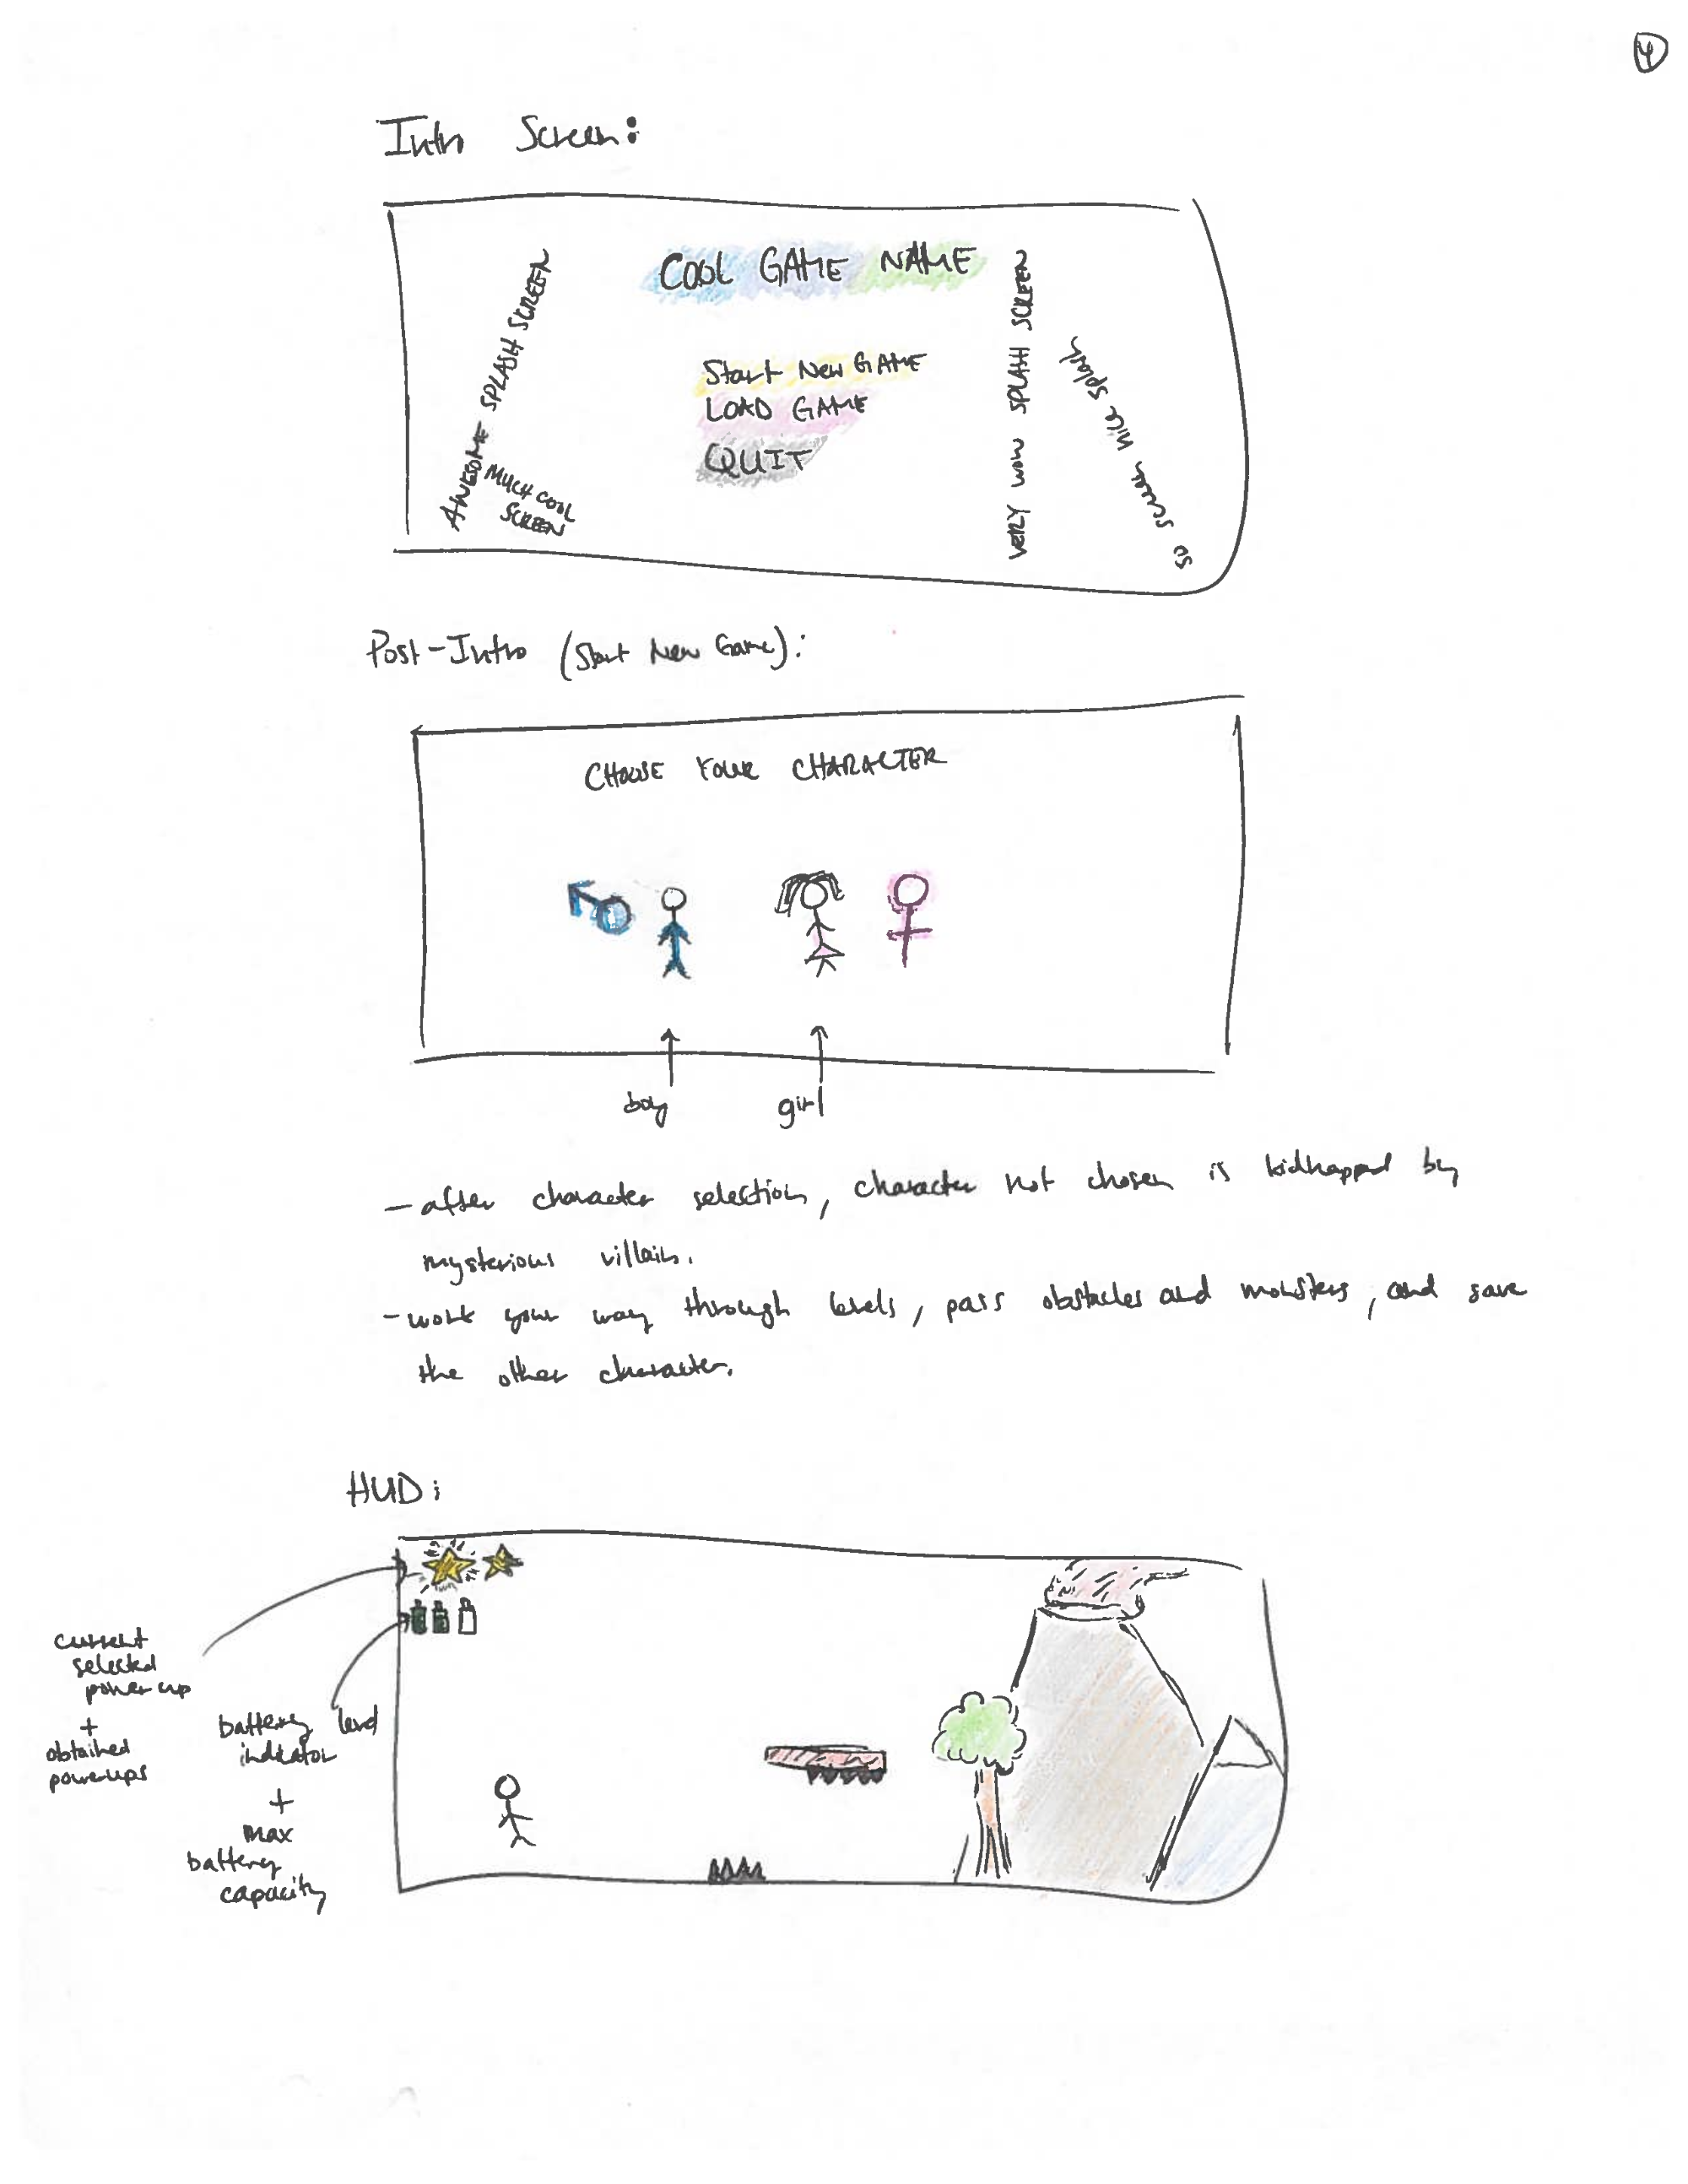 4
Intro Screen:
COOL GAME NAME
AWESOME SPLASH SCREEN
MUCH COOL
SCREEN
Start New GAME
LOAD GAME
QUIT
VERY WOW SPLASH SCREEN
so screen nice splash
Post-Intro (Start New Game):
CHOOSE YOUR CHARACTER
boy
girl
- after character selection, character not chosen is kidnapped by
mysterious villain.
- work your way through levels, pass obstacles and monsters, and save
the other character.
HUD:
current
selected
power up
+
obtained
powerups
battery level
indicator
+
max
battery
capacity